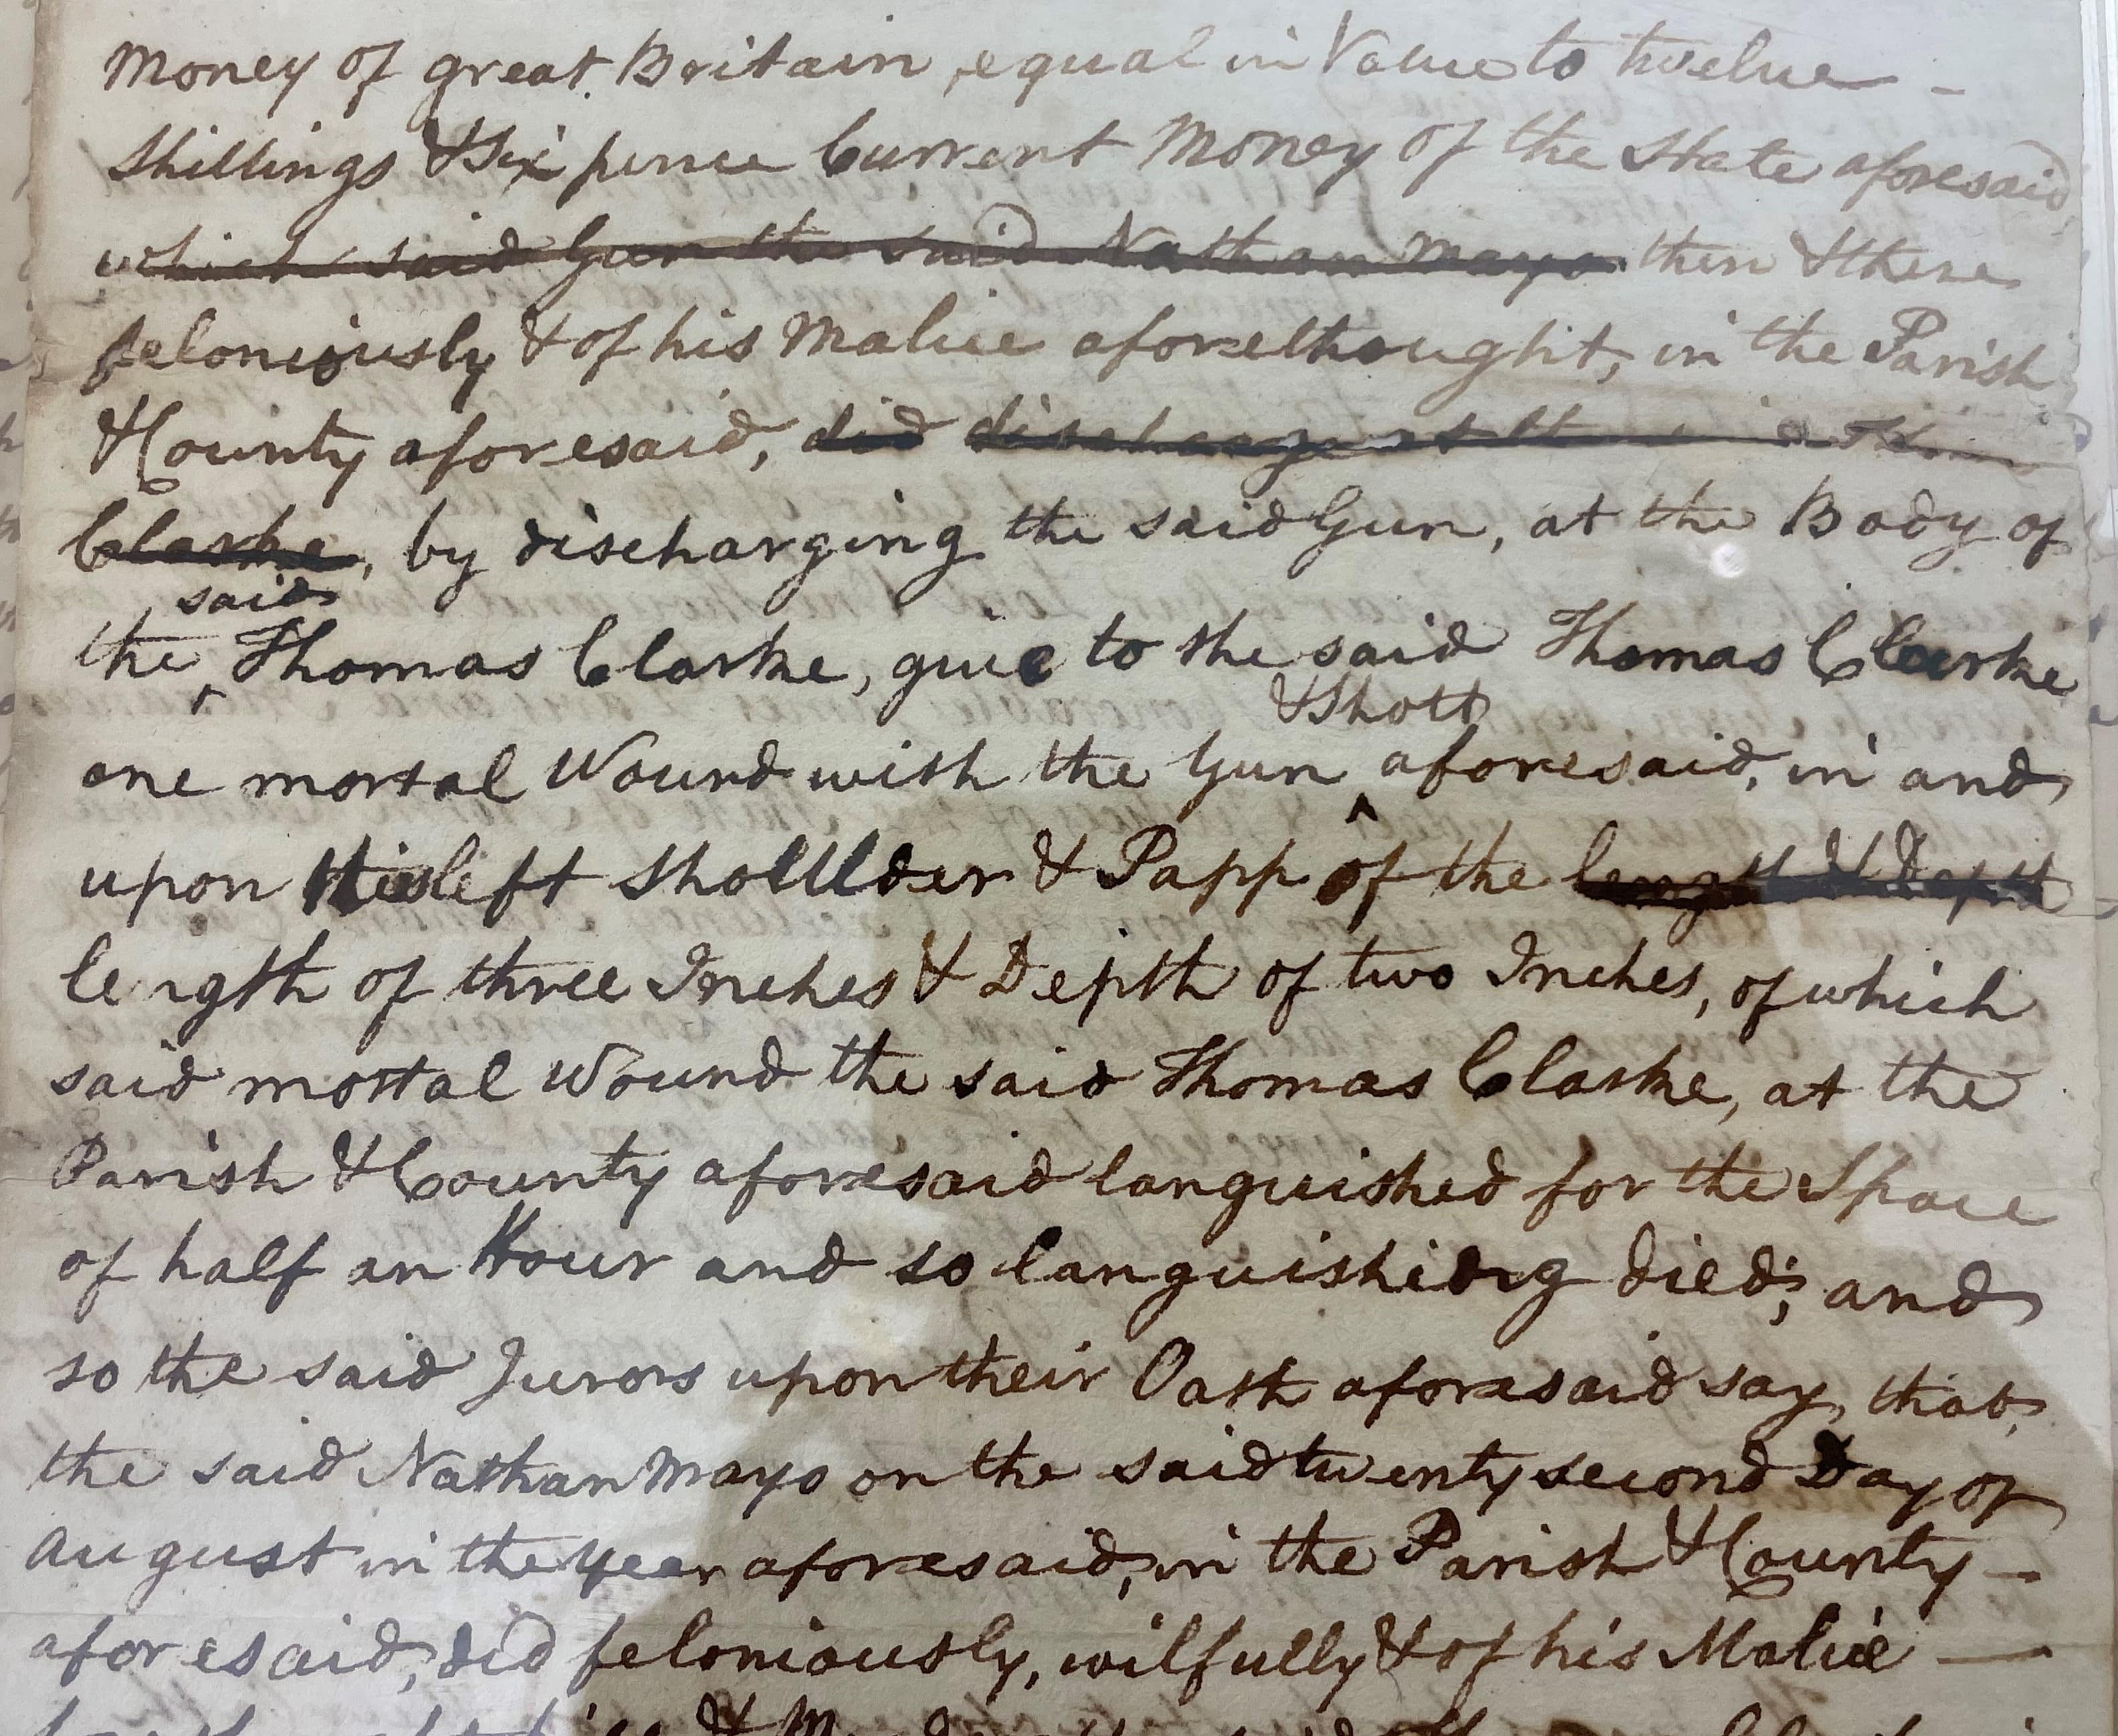 Money of great Britain, equal in Value to twelve -
Shillings & Six pence Current Money of the State aforesaid,
which said Gun the said Nathan Mayo then & there
feloniously & of his Malice aforethought, in the Parish
& County aforesaid, did discharge at the
Clarke, by discharging the said Gun, at the Body of
said
the Thomas Clarke, give to the said Thomas Clarke
& Shott
one mortal Wound with the Gun aforesaid, in and
upon his left Shoulder & Papp of the length & Depth
length of three Inches & Depth of two Inches, of which
said mortal Wound the said Thomas Clarke, at the
Parish & County aforesaid languished for the Space
of half an Hour and so languishing died; and
so the said Jurors upon their Oath aforesaid say, that,
the said Nathan Mayo on the said twenty second Day of
August in the Year aforesaid, in the Parish & County -
aforesaid, did feloniously, wilfully & of his Malice -